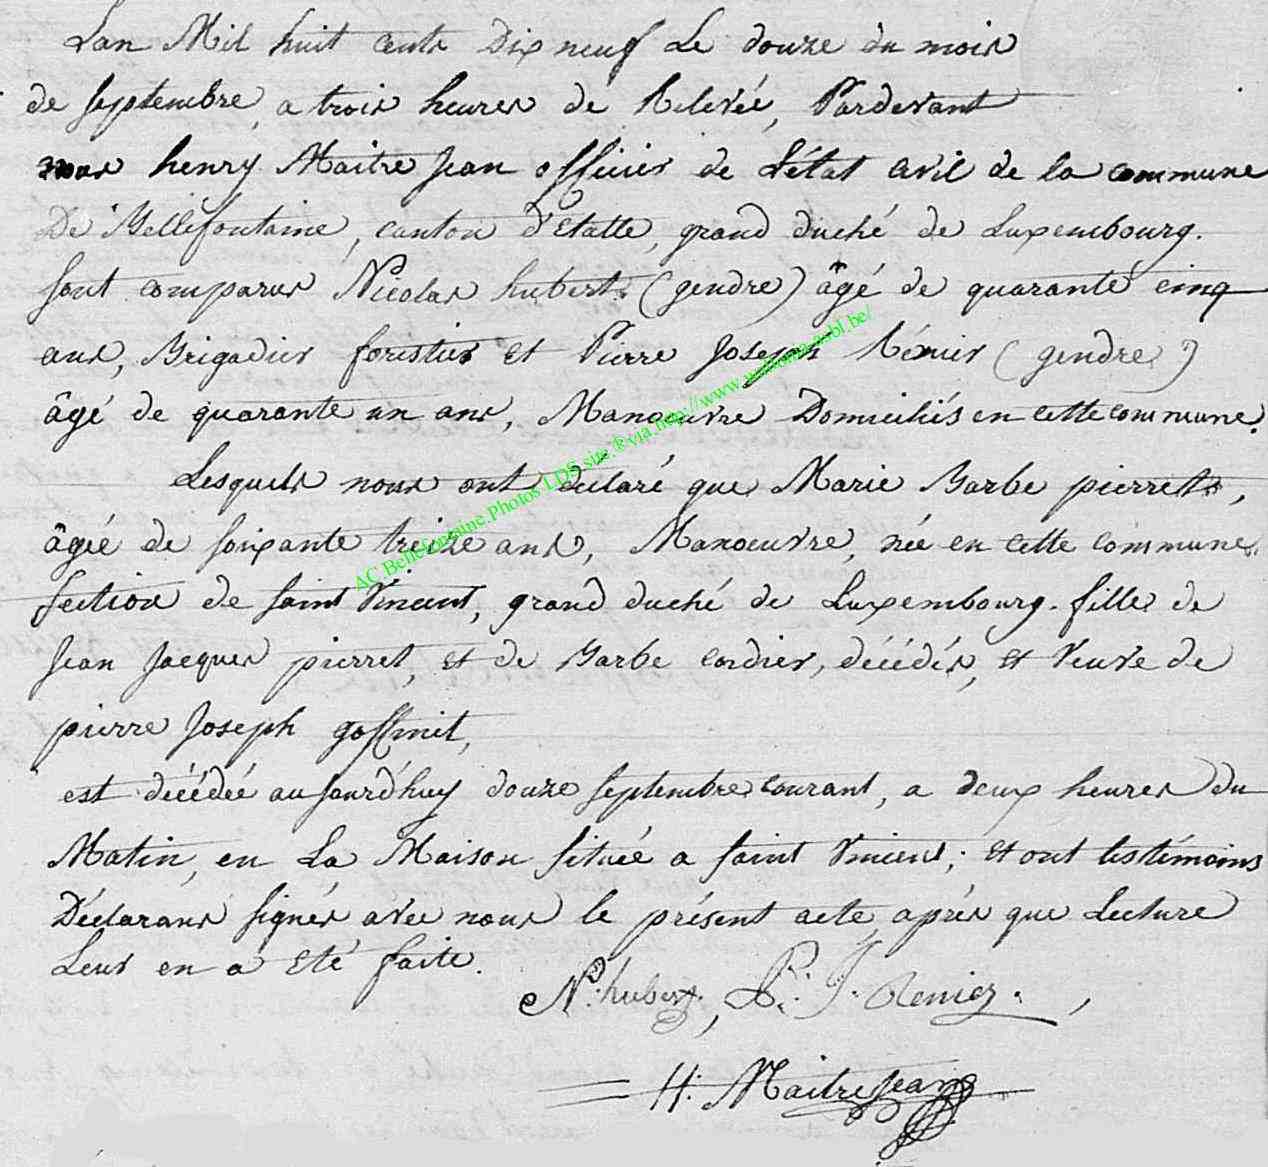 Lan Mil huit cents Dix neuf Le douze du mois
de septembre, a trois heures de Relevée, Pardevant
nous henry Maitre Jean officier de L'état civil de la commune
De Bellefontaine, canton d'Etalle, grand duché de Luxembourg.
sont comparus Nicolas hubert (gendre) âgé de quarante cinq
ans, Brigadier forestier et Pierre Joseph Rénier (gendre)
âgé de quarante un ans, Manoeuvre Domiciliés en cette commune.
Lesquels nous ont déclaré que Marie Barbe pierret,
âgée de soixante treize ans, Manoeuvre, née en cette commune,
section de saint Vincent, grand duché de Luxembourg. fille de
Jean Jacques pierret, et de Barbe cordier, décédés, et Veuve de
pierre Joseph goffinet,
est décédée aujourd'huy douze septembre courant, a deux heures du
Matin, en La Maison située a saint Vincent; et ont les témoins
Déclarans signés avec nous le présent acte après que Lecture
Leur en a été faite.
N. hubert, P. J. Renier.,
H. Maitrejean
AC Bellefontaine.Photos LDS site.®via http://www.wallonia-asbl.be/